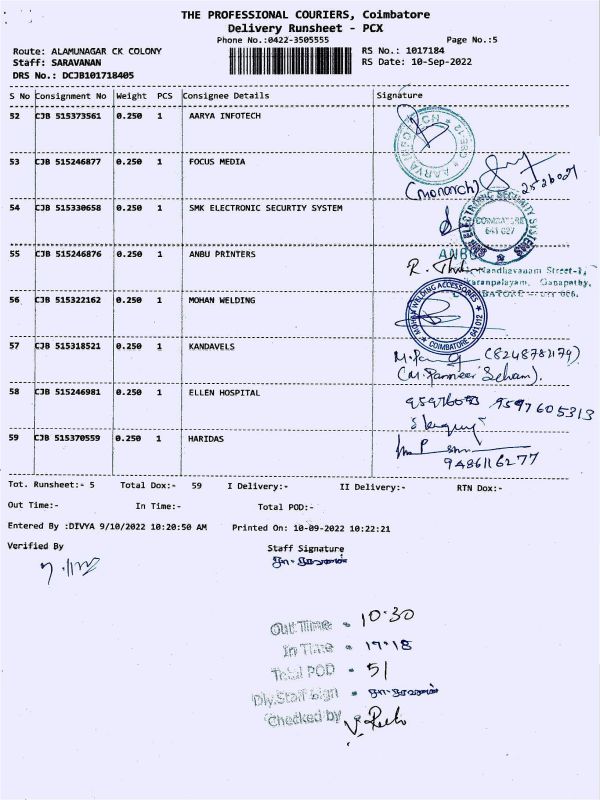 THE PROFESSIONAL COURIERS, Coimbatore
Delivery Runsheet - PCX
Phone No.:0422-3505555
Page No.:5
Route: ALAMUNAGAR CK COLONY
RS No.: 1017184
Staff: SARAVANAN
RS Date: 10-Sep-2022
DRS No.: DCJB101718405
S No Consignment No Weight PCS Consignee Details Signature
52 CJB 515373561 0.250 1 AARYA INFOTECH
53 CJB 515246877 0.250 1 FOCUS MEDIA
(monarch)
54 CJB 515330658 0.250 1 SMK ELECTRONIC SECURTIY SYSTEM
COIMBATORE
641 027
55 CJB 515246876 0.250 1 ANBU PRINTERS
ANBU
Nandhavanam Street-1,
Ganapathy,
56 CJB 515322162 0.250 1 MOHAN WELDING
MOHAN WELDING ACCESSORIES
COIMBATORE - 641 012
57 CJB 515318521 0.250 1 KANDAVELS
(8248781179)
58 CJB 515246981 0.250 1 ELLEN HOSPITAL
9597605313
59 CJB 515370559 0.250 1 HARIDAS
9486116277
Tot. Runsheet:- 5 Total Dox:- 59 I Delivery:- II Delivery:- RTN Dox:-
Out Time:- In Time:- Total POD:-
Entered By :DIVYA 9/10/2022 10:20:50 AM Printed On: 10-09-2022 10:22:21
Verified By Staff Signature
Out Time - 10:30
In Time - 17:18
Total POD - 51
Dly.Staff Sign -
Checked by